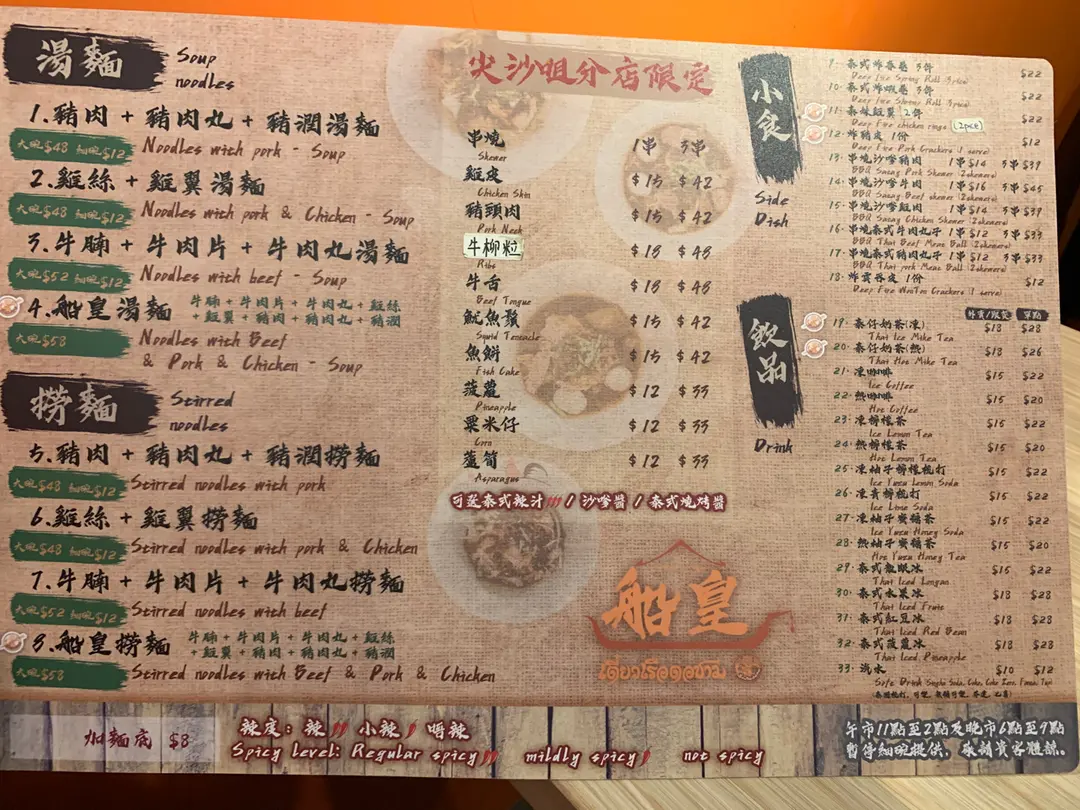 湯麵 Soup noodles
1.豬肉 + 豬肉丸 + 豬潤湯麵
大碗$48 細碗$12 Noodles with pork - Soup
2.雞絲 + 雞翼湯麵
大碗$48 細碗$12 Noodles with pork & Chicken - Soup
3.牛腩 + 牛肉片 + 牛肉丸湯麵
大碗$52 細碗$12 Noodles with beef - Soup
4.船皇湯麵 牛腩 + 牛肉片 + 牛肉丸 + 雞絲
+ 雞翼 + 豬肉 + 豬肉丸 + 豬潤
大碗$58 Noodles with Beef
& Pork & Chicken - Soup
撈麵 Stirred noodles
5.豬肉 + 豬肉丸 + 豬潤撈麵
大碗$48 細碗$12 Stirred noodles with pork
6.雞絲 + 雞翼撈麵
大碗$48 細碗$12 Stirred noodles with pork & Chicken
7.牛腩 + 牛肉片 + 牛肉丸撈麵
大碗$52 細碗$12 Stirred noodles with beef
8.船皇撈麵 牛腩 + 牛肉片 + 牛肉丸 + 雞絲
+ 雞翼 + 豬肉 + 豬肉丸 + 豬潤
大碗$58 Stirred noodles with Beef & Pork & Chicken
尖沙咀分店限定
串燒 1串 3串
Skewer
雞皮 $15 $42
Chicken Skin
豬頭肉 $15 $42
Pork Neck
牛柳粒 $18 $48
Ribs
牛舌 $18 $48
Beef Tongue
魷魚鬚 $15 $42
Squid Tentacle
魚餅 $15 $42
Fish Cake
菠蘿 $12 $33
Pineapple
粟米仔 $12 $33
Corn
蘆筍 $12 $33
Asparagus
可選泰式辣汁 / 沙嗲醬 / 泰式燒烤醬
船皇
小食
Side Dish
9· 泰式炸春卷 3件 $22
Deep Fire Spring Roll 3pice)
10· 泰式炸蝦卷 3件 $22
Deep Fire Shrimp Roll 3pice)
11· 泰妹雞翼 2件 $22
Deep Fire chicken rings (2pce)
12· 炸豬皮 1份 $12
Deep Fire Pork Crackers (1 serve)
13· 串燒沙嗲豬肉 1串$14 3串$39
BBQ Satay Pork Skewer (2skewers)
14· 串燒沙嗲牛肉 1串$16 3串$45
BBQ Satay Beef skewer (2skewers)
15· 串燒沙嗲雞肉 1串$14 3串$39
BBQ Satay Chicken Skewer (2skewers)
16· 串燒泰式牛肉丸子 1串$12 3串$33
BBQ Thai Beef Meat Ball (2skewers)
17· 串燒泰式豬肉丸子 1串$12 3串$33
BBQ Thai pork Meat Ball (2skewers)
18· 炸雲吞皮 1份 $12
Deep Fire WonTon Crackers (1 serve)
飲品
Drink
外賣/跟餐 單點
19· 泰仔奶茶(凍) $18 $28
Thai Ice Milk Tea
20· 泰仔奶茶(熱) $18 $26
Thai Hot Milk Tea
21· 凍咖啡 $15 $22
Ice Coffee
22· 熱咖啡 $15 $20
Hot Coffee
23· 凍檸檬茶 $15 $22
Ice Lemon Tea
24· 熱檸檬茶 $15 $20
Hot Lemon Tea
25· 凍柚子檸檬梳打 $15 $22
Ice Yuzu Lemon Soda
26· 凍青檸梳打 $15 $22
Ice Lime Soda
27· 凍柚子蜜糖茶 $15 $22
Ice Yuzu Honey Soda
28· 熱柚子蜜糖茶 $15 $20
Hot Yuzu Honey Tea
29· 泰式龍眼冰 $15 $22
Thai Iced Longan
30· 泰式水果冰 $18 $28
Thai Iced Fruits
31· 泰式紅豆冰 $18 $28
Thai Iced Red Bean
32· 泰式菠蘿冰 $18 $28
Thai Iced Pineapple
33· 汽水 $10 $12
Soft Drink
加麵底 $8
辣度: 辣 小辣 唔辣
Spicy level: Regular spicy mildly spicy not spicy
午市11點至2點及晚市6點至9點
暫停細碗提供, 敬請貴客體諒。